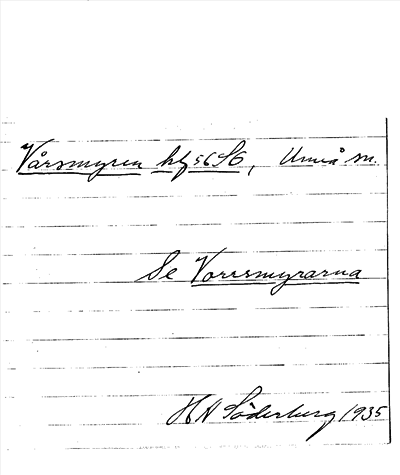 Vårsmyren kbl 56 S6, Umeå sn.
Se Vorrsmyrarna
H N Söderberg 1935